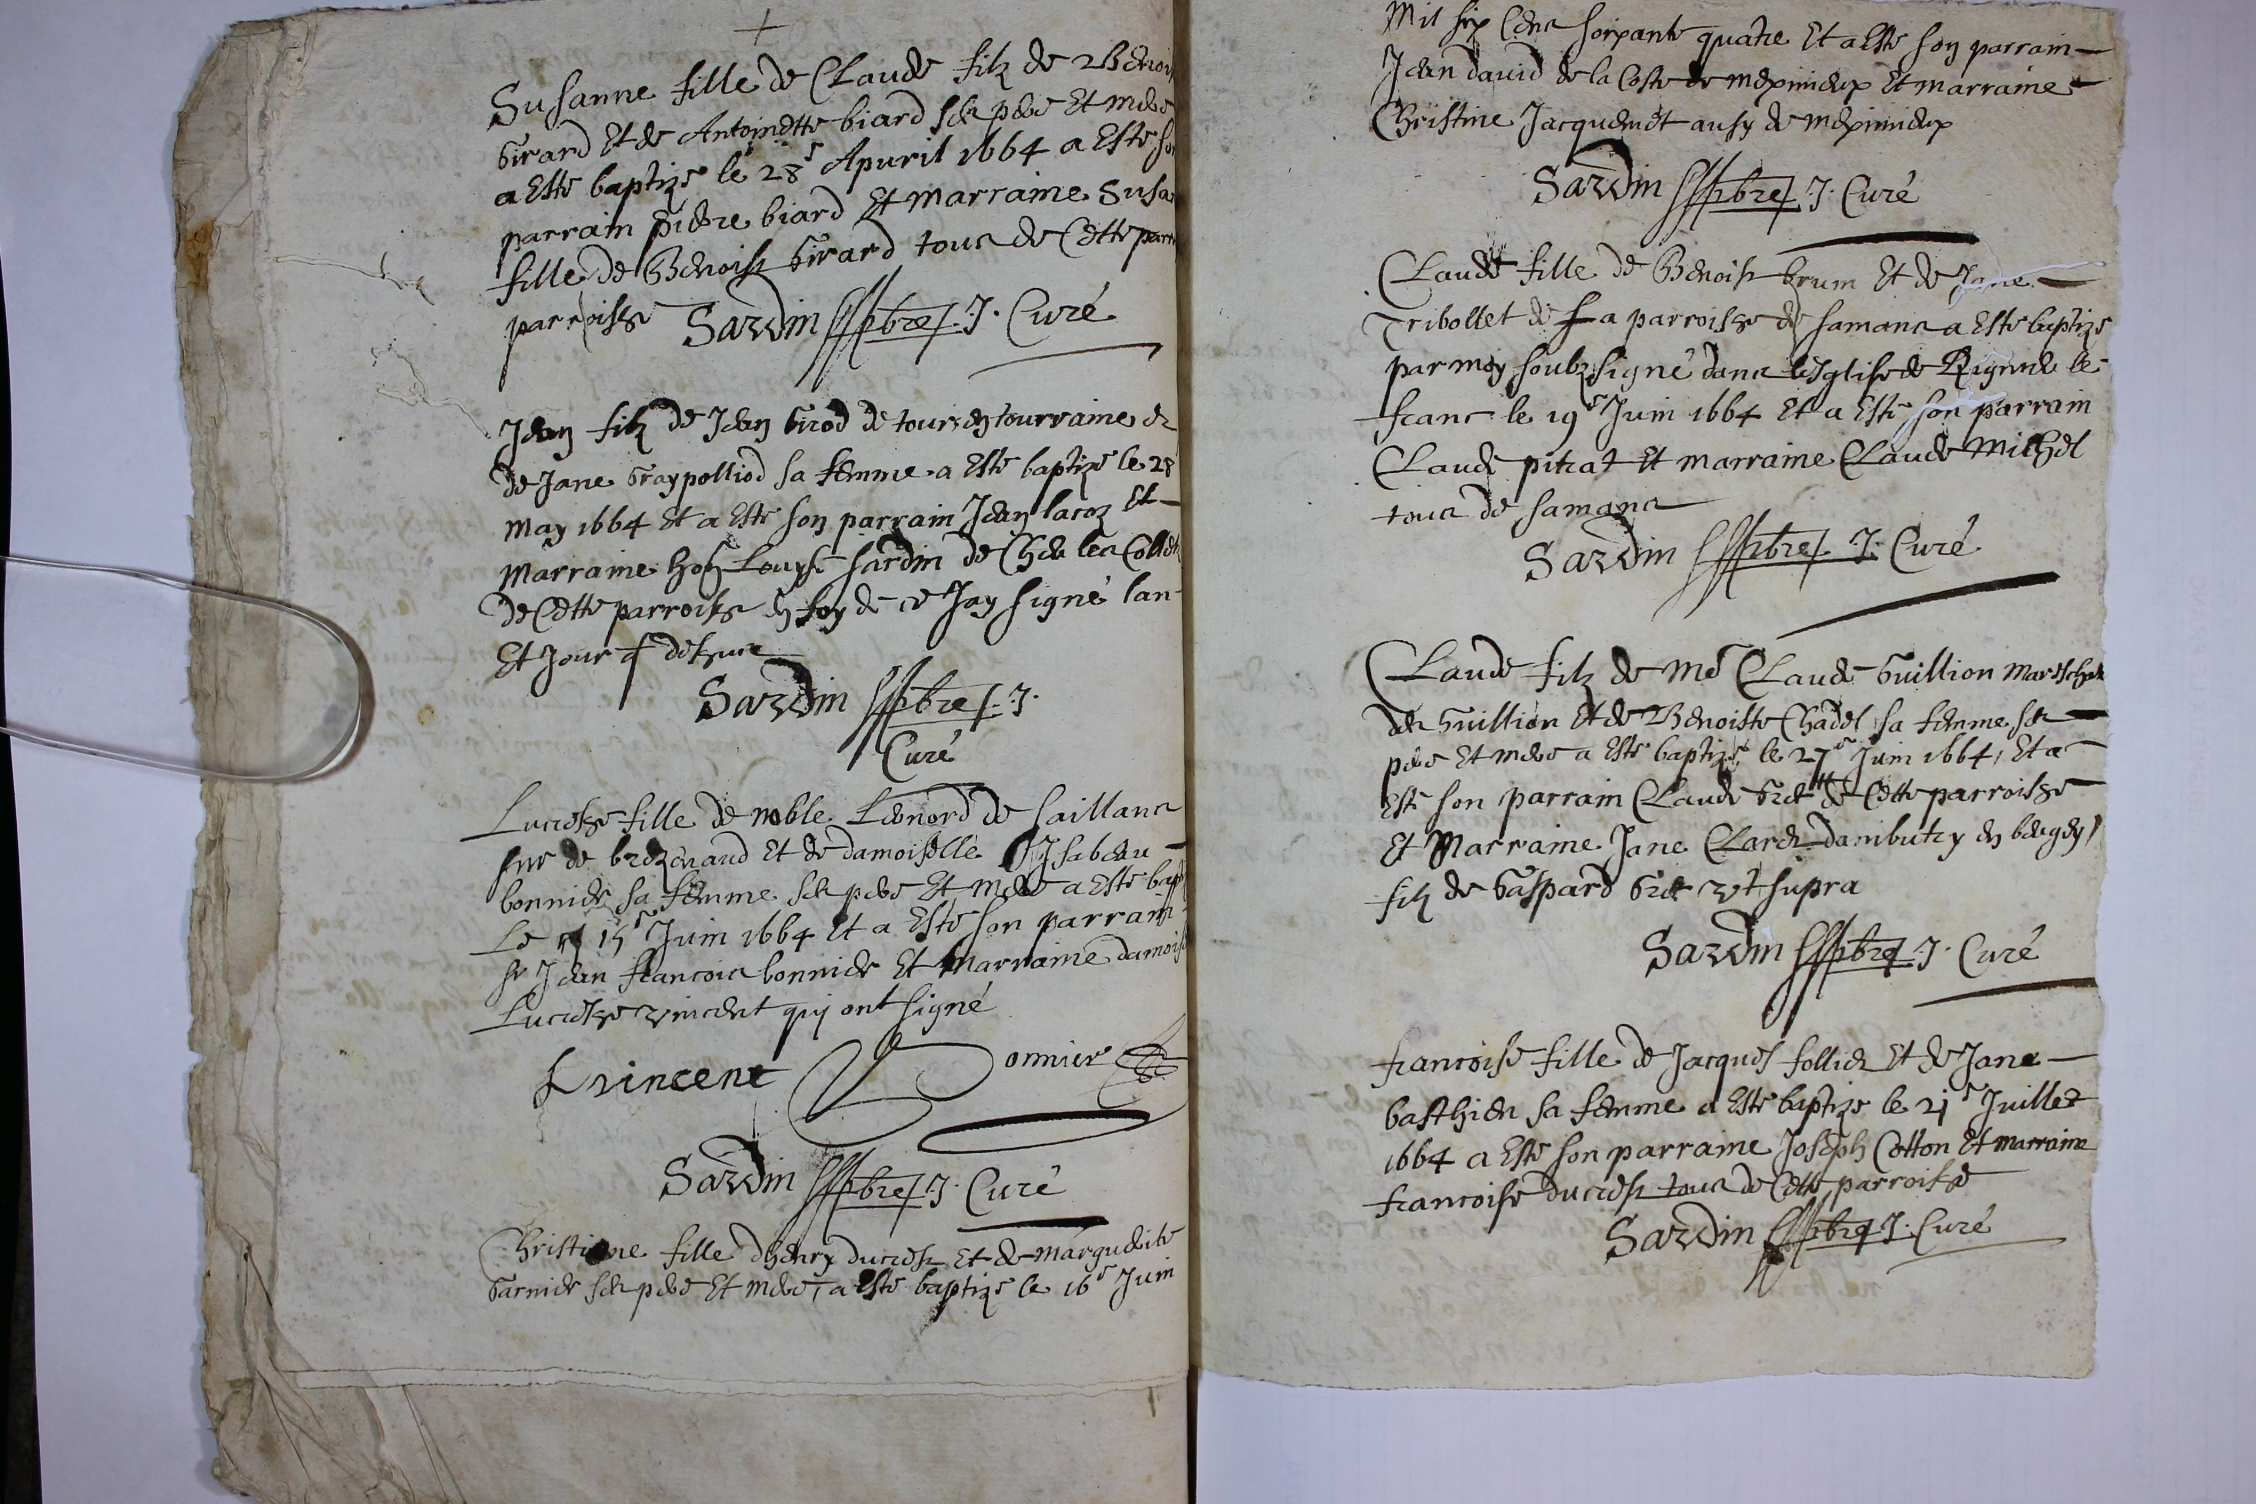 Susanne fille de Claude filz de Benoi
Girard Et de Antoinette biard ses pere Et mere
a Esté baptizé le 28e Apuril 1664 a Esté so
parrain pierre biard Et Marraine Susa
fille de Benoist Girard tous de Cette
parroisse Sardin pbre J. Curé
Jean filz de Jean Girod de tours en tourraine et
de Jane sa femme a Esté baptizé le 28
May 1664 Et a Esté son parrain Jean lacoz Et
Marraine hon Louyse Sardin de Collet
de Cette parroisse En foy de ce Jay signé lan
Et Jour q dessus
Sardin pbre J.
Curé
Lucresse fille de noble Leonord de Saillans
sieur de brezenaud Et de damoiselle Isabeau
bonnier sa femme ses pere Et Mere a Esté bap
Le 15e Juin 1664 Et a Esté son parrain
sr Jean francois bonnier Et Marraine damois
Lucresse vincent quj ont signé
L vincent Bonnier
Sardin pbre J. Curé
Christine fille dhenry ducrest Et de Marguerite
Garnier ses pere Et mere, a Esté baptizé le 16e Juin
Mil six Cens soixante quatre Et a Esté son parrain
Jean david de la Coste de meximieux Et marraine
Christine Jacquemet ausy de meximieux
Sardin pbre J. Curé
Claude fille de Benoist brum Et de Jane
Tribollet de la parroisse de samans a Esté baptizé
par moy soubzsigné dans leglise de Rignieu le
franc le 19e Juin 1664 Et a Esté son parrain
Claude pitrat Et marraine Claude Michel
tous de samans
Sardin pbre J. Curé
Claude filz de Me Claude Guillion Mareschal
des Guillion Et de Benoiste Chadel sa femme ses
pere Et mere a Esté baptizé le 27e Juin 1664, Et a
Esté son parrain Claude de Cette parroisse
Et Marraine Jane Claret dambutry En beugey,
filz de Gaspard vt supra
Sardin pbre J. Curé
francoise fille de Jacques follier Et de Jane
basthien sa femme a Esté baptizé le 21e Juillet
1664 a Esté son parraine Joseph Cotton Et marraine
francoise ducrest tous de Cette parroisse
Sardin pbre J. Curé